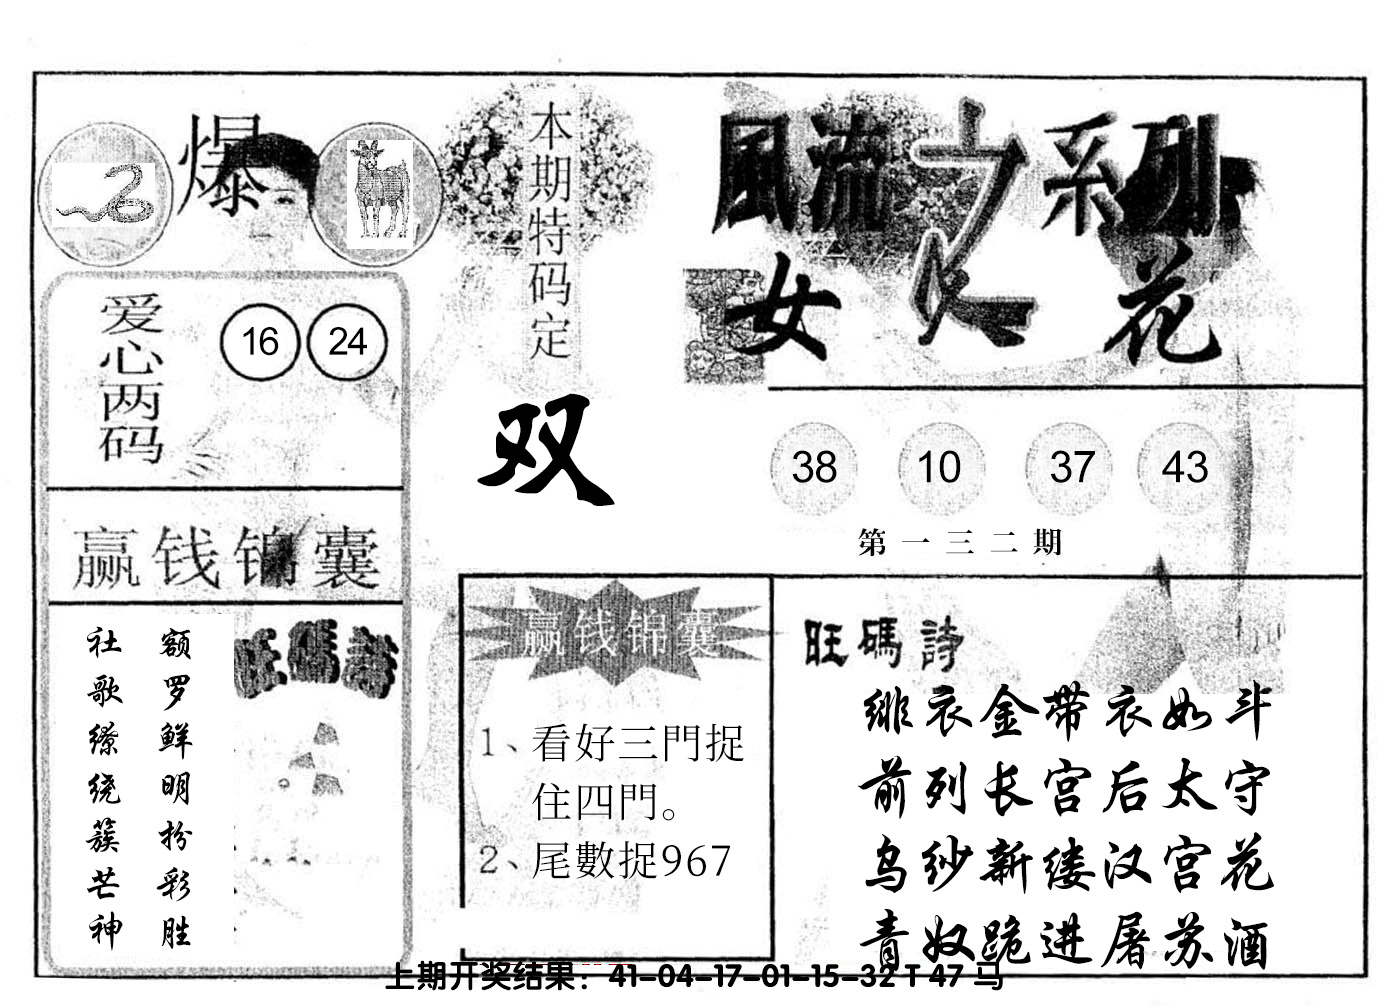 爆
本期特码定
双
風流之系列
女人花
爱心两码
16 24
38 10 37 43
第一三二期
赢钱锦囊
额罗鲜明扮彩胜
社歌缭绕簇芒神
旺碼詩
赢钱锦囊
1、看好三門捉
住四門。
2、尾數捉967
旺碼詩
绯衣金带衣如斗
前列长宫后太守
乌纱新缕汉宫花
青奴跪进屠苏酒
上期开奖结果：41-04-17-01-15-32 T 47 马